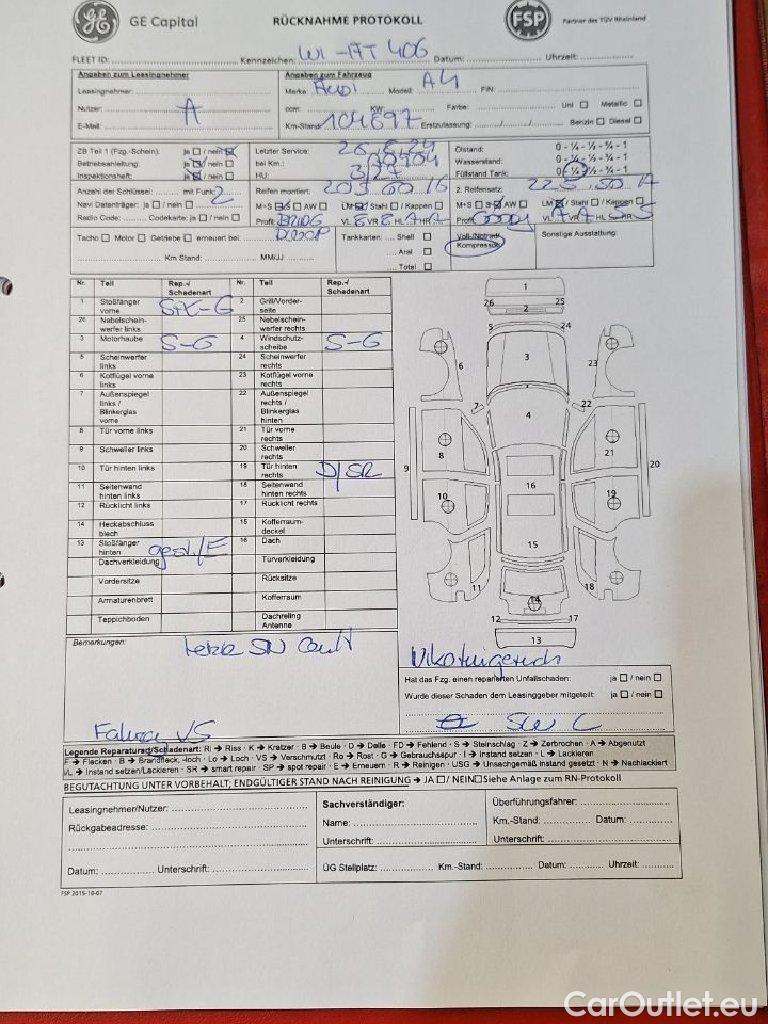 GE Capital RÜCKNAHME PROTOKOLL FSP Partner des TÜV Rheinland
FLEET ID: Kennzeichen: WI-AT 406 Datum: Uhrzeit:
Angaben zum Leasingnehmer Angaben zum Fahrzeug
Leasingnehmer: Marke Audi Modell: A4 FIN:
Nutzer: A ccm: KW: Farbe: Uni ☐ Metallic ☐
E-Mail: Km-Stand: 104697 Erstzulassung: Benzin ☐ Diesel ☐
ZB Teil 1 (Fzg.-Schein): ja ☐ / nein ☒ Letzter Service: Ölstand: 0 - ¼ - ½ - ¾ - 1
Betriebsanleitung: ja ☒ / nein ☐ bei Km.: Wasserstand: 0 - ¼ - ½ - ¾ - 1
Inspektionsheft: HU: 3/27 Füllstand Tank: 0 - ¼ - ½ - ¾ - 1
Anzahl der Schlüssel: mit Funk: 2 Reifen montiert: 2. Reifensatz:
Navi Datenträger: ja ☐ / nein ☐ M+S S AW ☐ LM ☒ / Stahl ☐ / Kappen ☐ M+S S AW ☐ LM ☒ / Stahl ☐ / Kappen ☐
Radio Code: Codekarte: ja ☐ / nein ☐ Profil: VL VR HL HR Profil: VL VR HL HR
Tacho ☐ Motor ☐ Getriebe ☐ erneuert bei: Tankkarten: Shell ☐ Voll-/Notrad/ Sonstige Ausstattung:
Aral ☐ Kompressor
Km Stand: MM/JJ Total ☐
Nr. Teil Rep.-/ Schadenart Nr. Teil Rep.-/ Schadenart
1 Stoßfänger vorne 2 Grill/Vorderseite
26 Nebelscheinwerfer links 25 Nebelscheinwerfer rechts
3 Motorhaube S-G 4 Windschutzscheibe S-G
5 Scheinwerfer links 24 Scheinwerfer rechts
6 Kotflügel vorne links 23 Kotflügel vorne rechts
7 Außenspiegel links / Blinkerglas vorne 22 Außenspiegel rechts / Blinkerglas hinten
8 Tür vorne links 21 Tür vorne rechts
9 Schweller links 20 Schweller rechts
10 Tür hinten links 19 Tür hinten rechts D/SR
11 Seitenwand hinten links 18 Seitenwand hinten rechts
12 Rücklicht links 17 Rücklicht rechts
14 Heckabschlussblech 15 Kofferraumdeckel
13 Stoßfänger hinten 16 Dach
Dachverkleidung Türverkleidung
Vordersitze Rücksitze
Armaturenbrett Kofferraum
Teppichboden Dachreling Antenne
1
26 25
2
5 24
6 3 23
7 22
4
8 21
9 20
10 16 19
15
11 14 18
12 17
13
Bemerkungen:
Hat das Fzg. einen reparierten Unfallschaden: ja ☐ / nein ☐
Wurde dieser Schaden dem Leasinggeber mitgeteilt: ja ☐ / nein ☐
Legende Reparaturart/Schadenart: RI → Riss · K → Kratzer · B → Beule · D → Delle · FD → Fehlend · S → Steinschlag · Z → Zerbrochen · A → Abgenutzt
F → Flecken · B → Brandfleck, -loch · Lo → Loch · VS → Verschmutzt · Ro → Rost · G → Gebrauchsspur · I → Instand setzen · L → Lackieren
I/L → Instand setzen/Lackieren · SR → smart repair · SP → spot repair · E → Erneuern · R → Reinigen · USG → Unsachgemäß instand gesetzt · N → Nachlackiert
BEGUTACHTUNG UNTER VORBEHALT, ENDGÜLTIGER STAND NACH REINIGUNG → JA ☐ / NEIN ☐ Siehe Anlage zum RN-Protokoll
Leasingnehmer/Nutzer: Sachverständiger: Überführungsfahrer:
Rückgabeadresse: Name: Km.-Stand: Datum:
Unterschrift: Unterschrift:
Datum: Unterschrift: ÜG Stellplatz: Km.-Stand: Datum: Uhrzeit:
FSP 2015-10-07
CarOutlet.eu